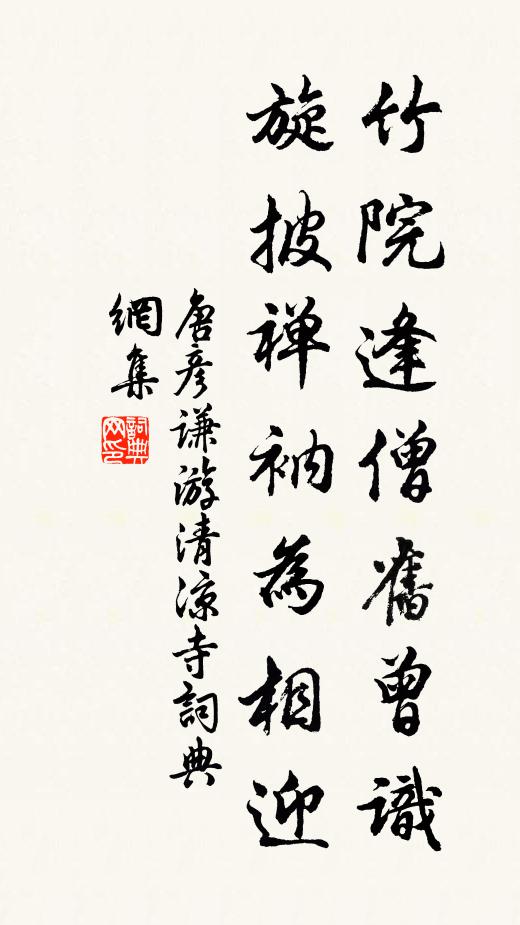 竹院逢僧舊曾識
旋披禅衲為相迎
唐彥谦游清凉寺詞典
網集
詞典
网印